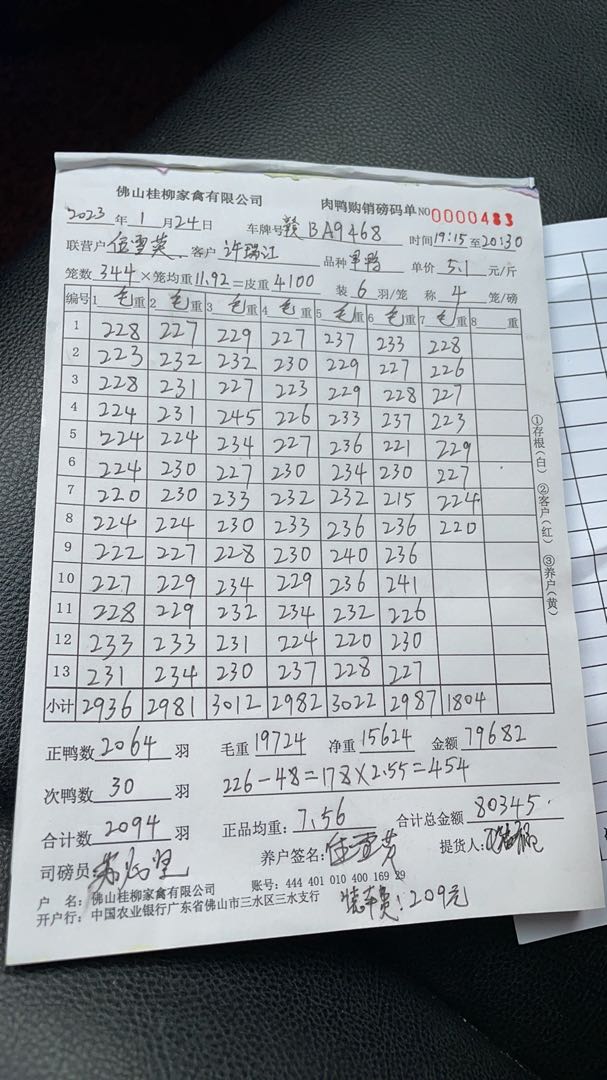 佛山桂柳家禽有限公司 肉鸭购销磅码单 NO 0000483
2023年1月24日 车牌号 赣BA9468 时间19:15至20:30
联营户 伍雪芬 客户 许瑞江 品种 单价 5.1 元/斤
笼数 344×笼均重11.92=皮重4100 装 6 羽/笼 称 4 笼/磅
编号 1 毛重 2 毛重 3 毛重 4 毛重 5 毛重 6 毛重 7 毛重 8 重
1 228 227 229 227 237 233 228
2 223 232 232 230 229 227 226
3 228 231 227 223 229 228 227
4 224 231 245 226 233 237 223
5 224 224 234 227 236 221 229
6 224 230 227 230 234 230 227
7 220 230 233 232 232 215 224
8 224 224 230 233 236 236 220
9 222 227 228 230 240 236
10 227 229 234 229 236 241
11 228 229 232 234 232 226
12 233 233 231 224 220 230
13 231 234 230 237 228 227
小计 2936 2981 3012 2982 3022 2987 1804
①存根(白) ②客户(红) ③养户(黄)
正鸭数 2064 羽 毛重 19724 净重 15624 金额 79682
次鸭数 30 羽 226-48=178×2.55=454
合计数 2094 羽 正品均重: 7.56 合计总金额 80345.
司磅员 养户签名: 伍雪芬 提货人:
户 名: 佛山桂柳家禽有限公司 账号: 444 401 010 400 169 29
开户行: 中国农业银行广东省佛山市三水区三水支行 装车员: 209元